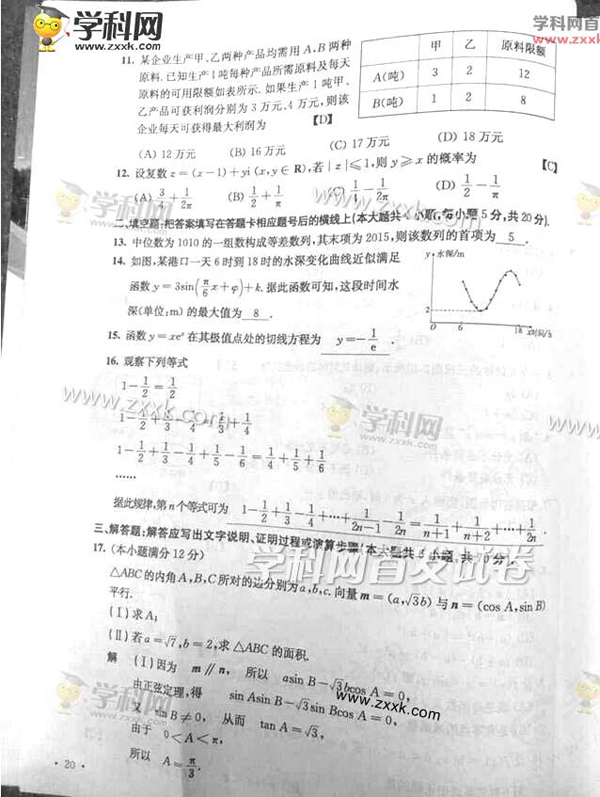 学科网
www.zxxk.com
学科网首
www.zx
11. 某企业生产甲、乙两种产品均需用 A、B 两种
原料. 已知生产 1 吨每种产品所需原料及每天
原料的可用限额如表所示. 如果生产 1 吨甲、
乙产品可获利润分别为 3 万元、4 万元, 则该
企业每天可获得最大利润为 【D】
甲 乙 原料限额
A(吨) 3 2 12
B(吨) 1 2 8
(A) 12 万元 (B) 16 万元 (C) 17 万元 (D) 18 万元
12. 设复数 z=(x-1)+yi (x, y∈R), 若 |z|≤1, 则 y≥x 的概率为 【C】
(A) 3/4+1/2π (B) 1/2+1/π (C) 1/4- (D) 1/2-1/π
二、填空题: 把答案填写在答题卡相应题号后的横线上(本大题共 小题, 每小题 5 分, 共 20 分).
13. 中位数为 1010 的一组数构成等差数列, 其末项为 2015, 则该数列的首项为 5 .
14. 如图, 某港口一天 6 时到 18 时的水深变化曲线近似满足
函数 y=3sin(π/6 x+φ)+k. 据此函数可知, 这段时间水
深(单位:m) 的最大值为 8 .
y 水深/m
2
O 6 18 x时间/h
15. 函数 y=xeˣ 在其极值点处的切线方程为 y=-1/e .
16. 观察下列等式
1-1/2=1/2
1-1/2+1/3-1/4=1/3+1/4
1-1/2+1/3-1/4+1/5-1/6=1/4+1/5+1/6
……
据此规律, 第 n 个等式可为 1-1/2+1/3-1/4+…+1/2n-1-1/2n=1/n+1+1/n+2+…+1/2n.
三、解答题: 解答应写出文字说明、证明过程或演算步骤(本大题共 小题, 共 70 分).
17. (本小题满分 12 分)
△ABC 的内角 A, B, C 所对的边分别为 a, b, c. 向量 m=(a, √3b) 与 n=(cos A, sin B)
平行.
(Ⅰ) 求 A;
(Ⅱ) 若 a=√7, b=2, 求 △ABC 的面积.
解 (Ⅰ) 因为 m∥n, 所以 asin B-√3bcos A=0,
由正弦定理, 得 sin Asin B-√3sin Bcos A=0,
又 sin B≠0, 从而 tan A=√3,
由于 0<A<π,
所以 A=π/3.
· 20 ·
www.zxxk.com
www.zxxk.com
学科网
学科网首发试卷
学科网
www.zxxk.com